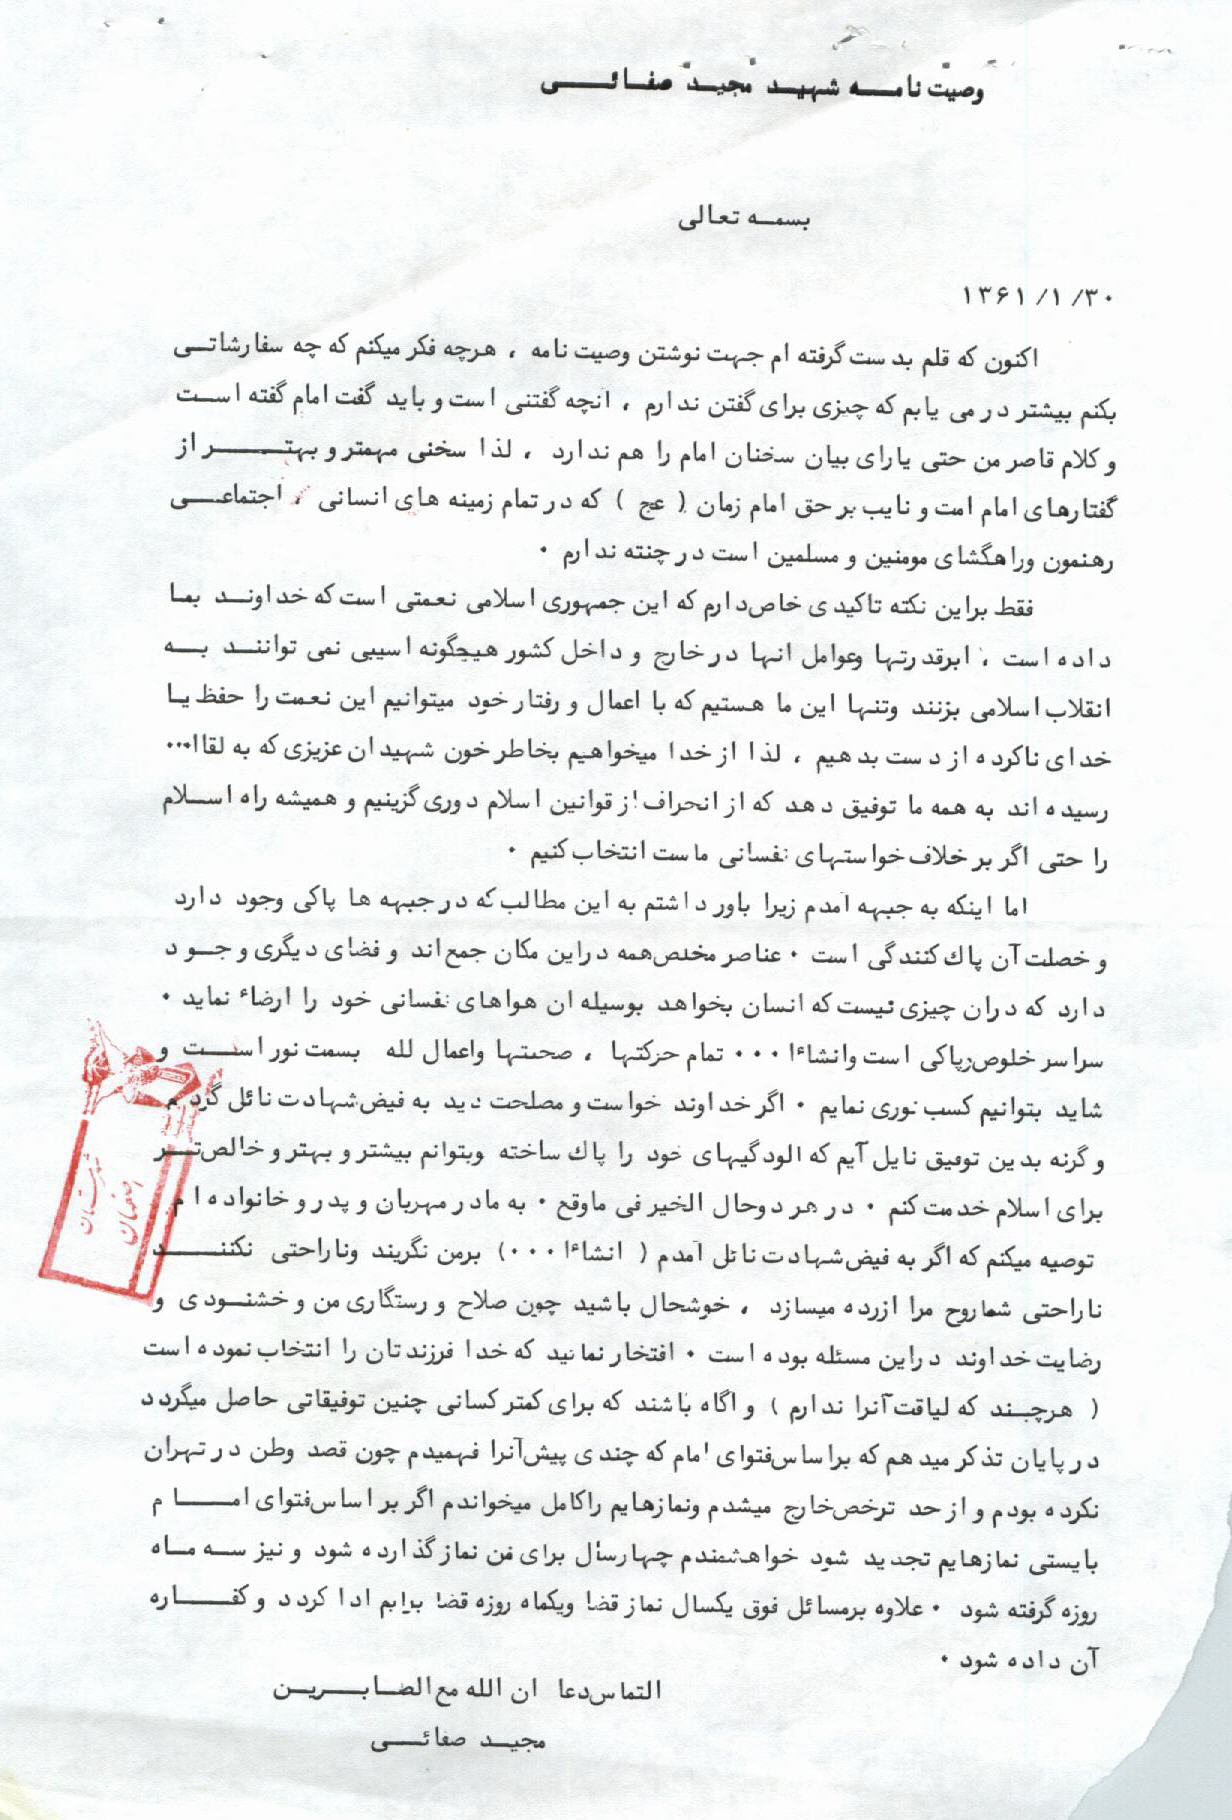 وصیت نامه شهید مجید صفائی
بسمه تعالی
۱۳۶۱/۱/۳۰
اکنون که قلم بدست گرفته ام جهت نوشتن وصیت نامه ، هرچه فکر میکنم که چه سفارشاتی
بکنم بیشتر در می یابم که چیزی برای گفتن ندارم ، انچه گفتنی است و باید گفت امام گفته است
و کلام قاصر من حتی یارای بیان سخنان امام را هم ندارد ، لذا سخنی مهمتر و بهتر از
گفتارهای امام امت و نایب بر حق امام زمان ( عج ) که در تمام زمینه های انسانی ، اجتماعی
رهنمون وراهگشای مومنین و مسلمین است در چنته ندارم ۰
فقط براین نکته تاکیدی خاص دارم که این جمهوری اسلامی نعمتی است که خداوند بما
داده است ، ابرقدرتها وعوامل انها در خارج و داخل کشور هیچگونه اسیبی نمی توانند به
انقلاب اسلامی بزنند وتنها این ما هستیم که با اعمال و رفتار خود میتوانیم این نعمت را حفظ یا
خدای ناکرده از دست بدهیم ، لذا از خدا میخواهیم بخاطر خون شهیدان عزیزی که به لقاا...
رسیده اند به همه ما توفیق دهد که از انحراف از قوانین اسلام دوری گزینیم و همیشه راه اسلام
را حتی اگر بر خلاف خواستهای نفسانی ماست انتخاب کنیم ۰
اما اینکه به جبهه آمدم زیرا باور داشتم به این مطالب که در جبهه ها پاکی وجود دارد
و خصلت آن پاك کنندگی است ۰ عناصر مخلص همه دراین مکان جمع اند و فضای دیگری وجود
دارد که دران چیزی نیست که انسان بخواهد بوسیله ان هواهای نفسانی خود را ارضاء نماید ۰
سراسر خلوص وپاکی است وانشاءا ۰۰۰ تمام حرکتها ، صحبتها واعمال لله بسمت نور است و
شاید بتوانیم کسب نوری نمایم ۰ اگر خداوند خواست و مصلحت دید به فیض شهادت نائل گردم
و گرنه بدین توفیق نایل آیم که الودگیهای خود را پاك ساخته وبتوانم بیشتر و بهتر و خالص تر
برای اسلام خدمت کنم ۰ در هر دوحال الخیر فی ماوقع ۰ به مادر مهربان و پدر و خانواده ام
توصیه میکنم که اگر به فیض شهادت نائل آمدم ( انشاءا ۰۰۰ ) برمن نگریند وناراحتی نکنند
ناراحتی شماروح مرا ازرده میسازد ، خوشحال باشید چون صلاح و رستگاری من و خشنودی و
رضایت خداوند دراین مسئله بوده است ۰ افتخار نمائید که خدا فرزندتان را انتخاب نموده است
( هرچند که لیاقت آنرا ندارم ) و اگاه باشند که برای کمتر کسانی چنین توفیقاتی حاصل میگردد
در پایان تذکر میدهم که براساس فتوای امام که چندی پیش آنرا فهمیدم چون قصد وطن در تهران
نکرده بودم و از حد ترخص خارج میشدم ونمازهایم راکامل میخواندم اگر بر اساس فتوای امام
بایستی نمازهایم تجدید شود خواهشمندم چهارسال برای من نماز گذارده شود و نیز سه ماه
روزه گرفته شود ۰ علاوه برمسائل فوق یکسال نماز قضا ویکماه روزه قضا برایم ادا کردد و کفاره
آن داده شود ۰
التماس دعا ان الله مع الصابرین
مجید صفائی
شهرستان
اصفهان